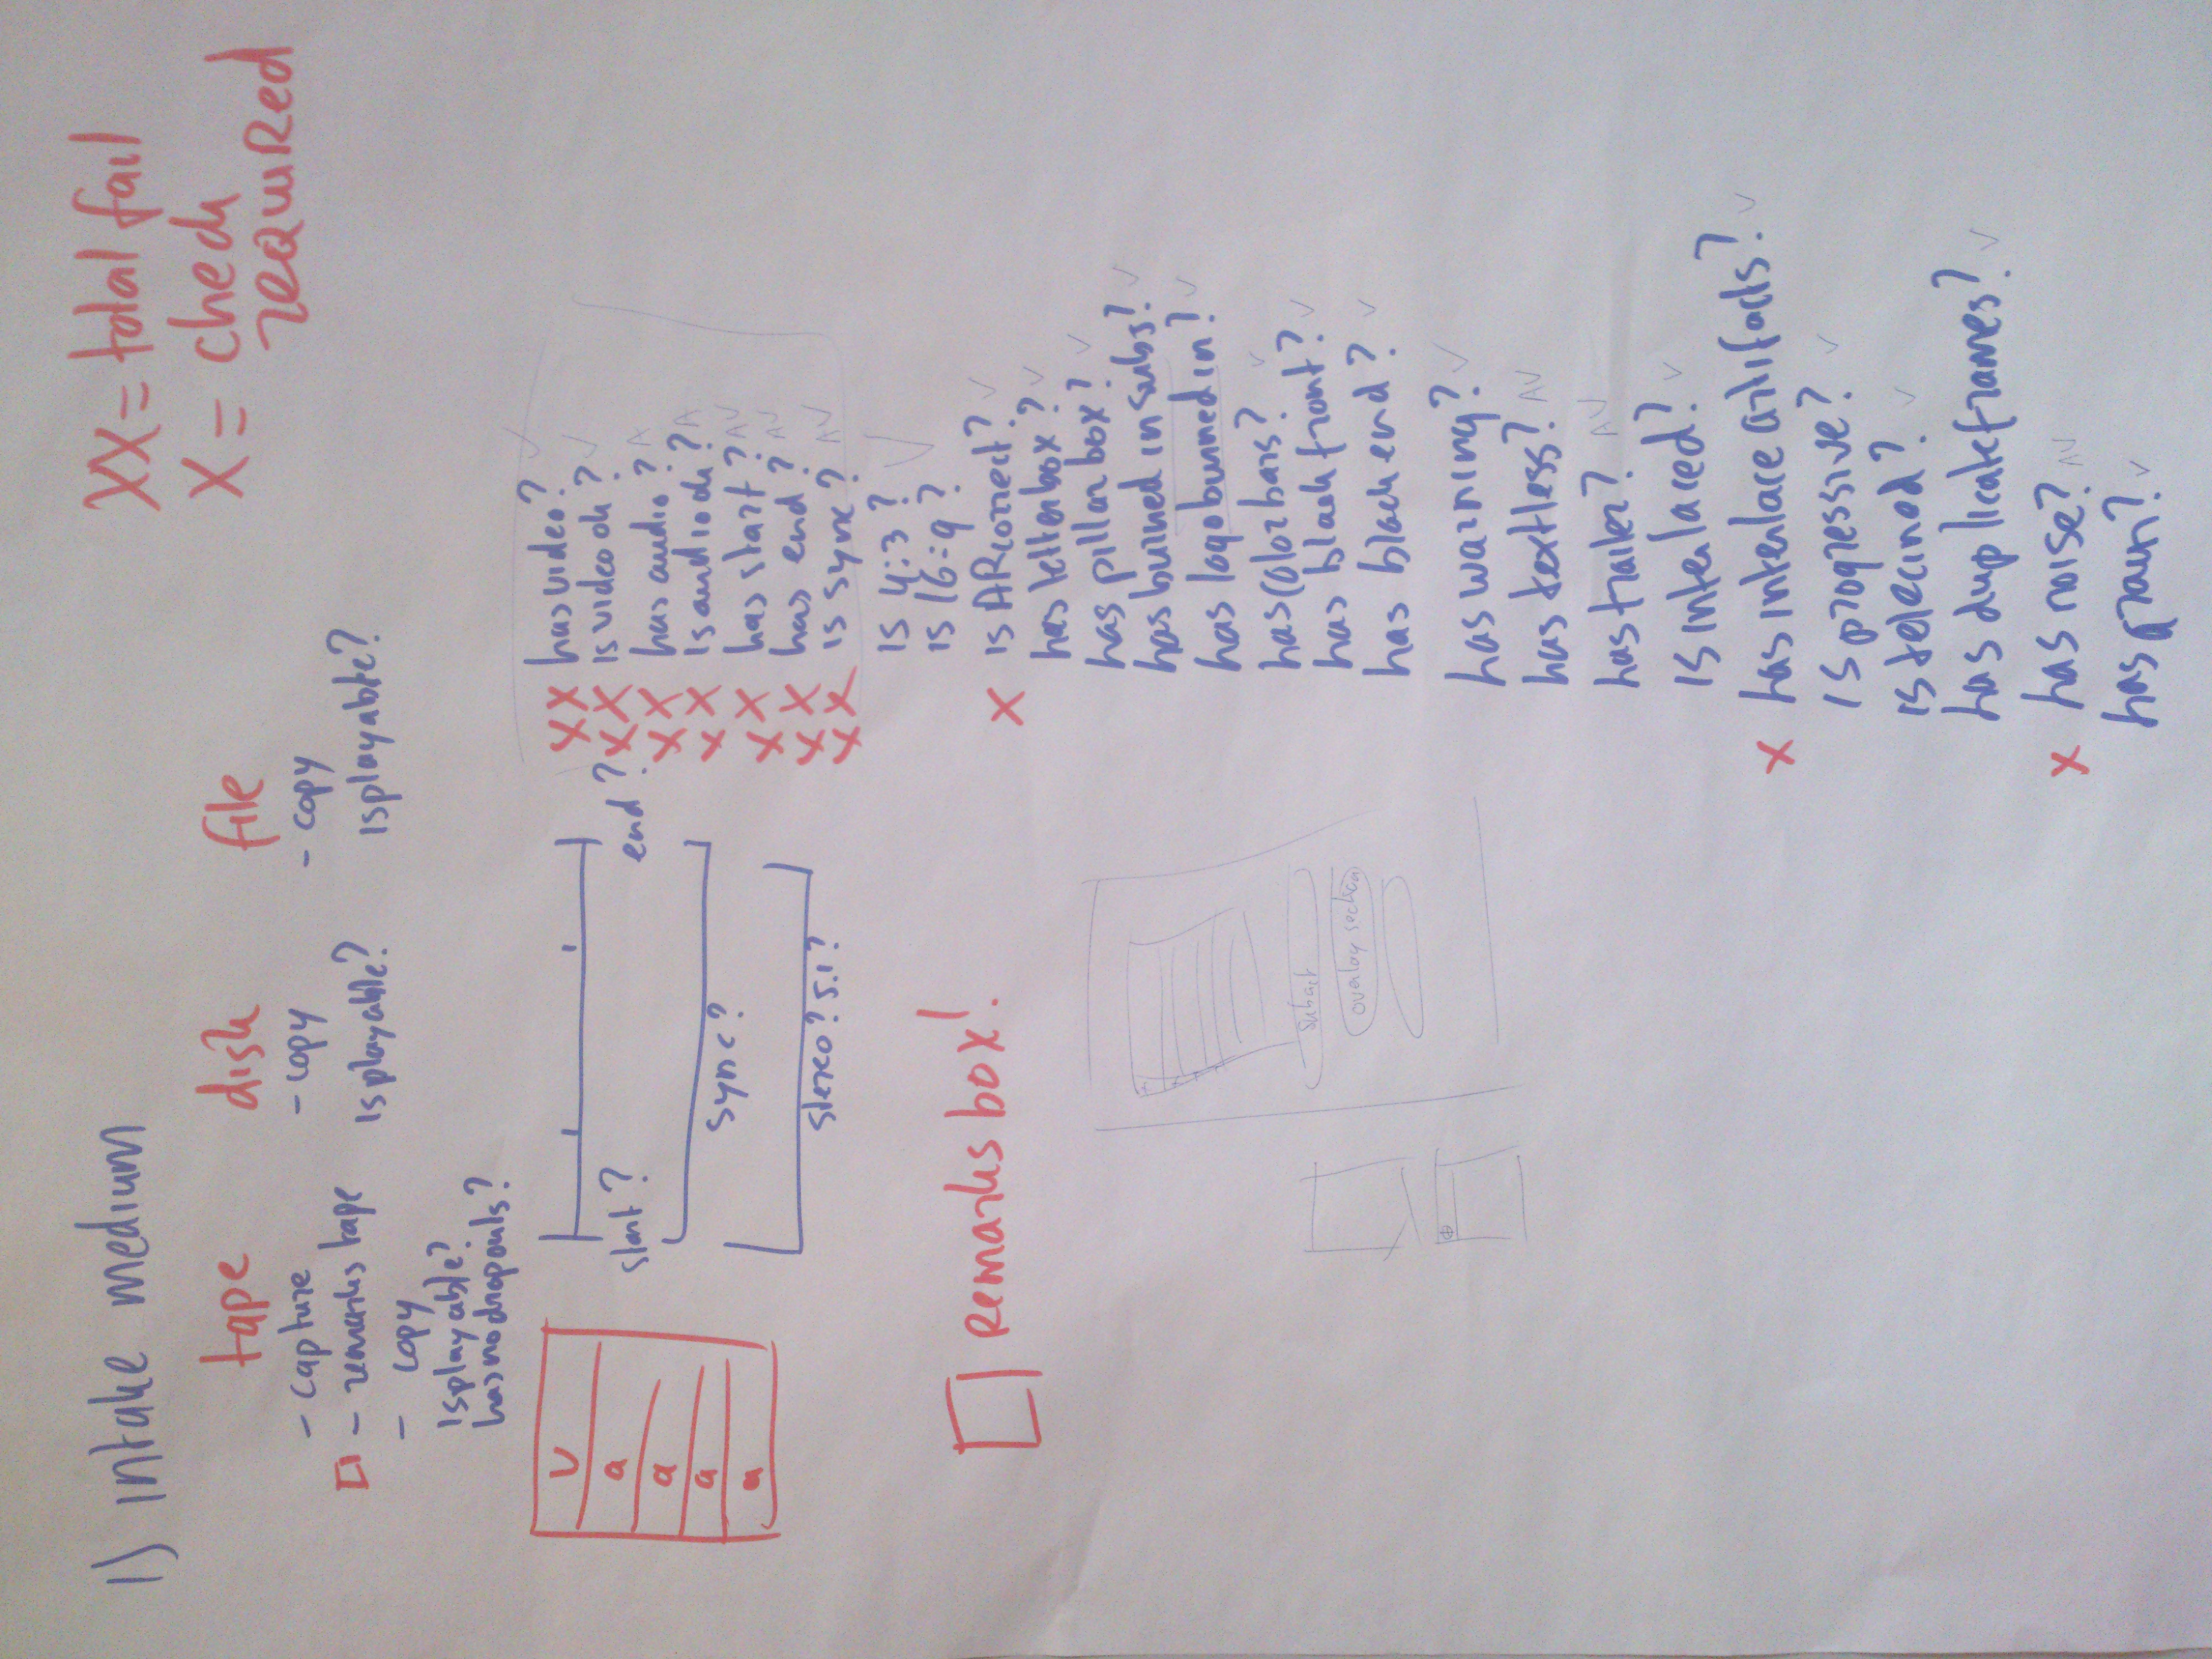 1) intake medium
XX = total fail
X = check
required
tape
- capture
- remarks tape
- copy
is playable?
has no dropouts?
disk
- copy
is playable?
file
- copy
is playable?
V
a
a
a
a
start?
end?
sync?
stereo? 5.1?
remarks box!
submit
overlay section
XX has video? ✓
XX is video ok? ✓
XX has audio? A
XX is audio ok? A
XX has start? AV
XX has end? AV
XX is sync? AV
is 4:3?
is 16:9? ✓
X is AR correct? ✓
has letterbox? ✓
has pillarbox? ✓
has burned in subs? ✓
has logo burned in? ✓
has colorbars? ✓
has black front? ✓
has black end? ✓
has warning? ✓
has textless? AV
has trailer? AV
is interlaced? ✓
X has interlace artifacts? ✓
is progressive? ✓
is telecined? ✓
has duplicate frames? ✓
X has noise? AV
has grain? ✓